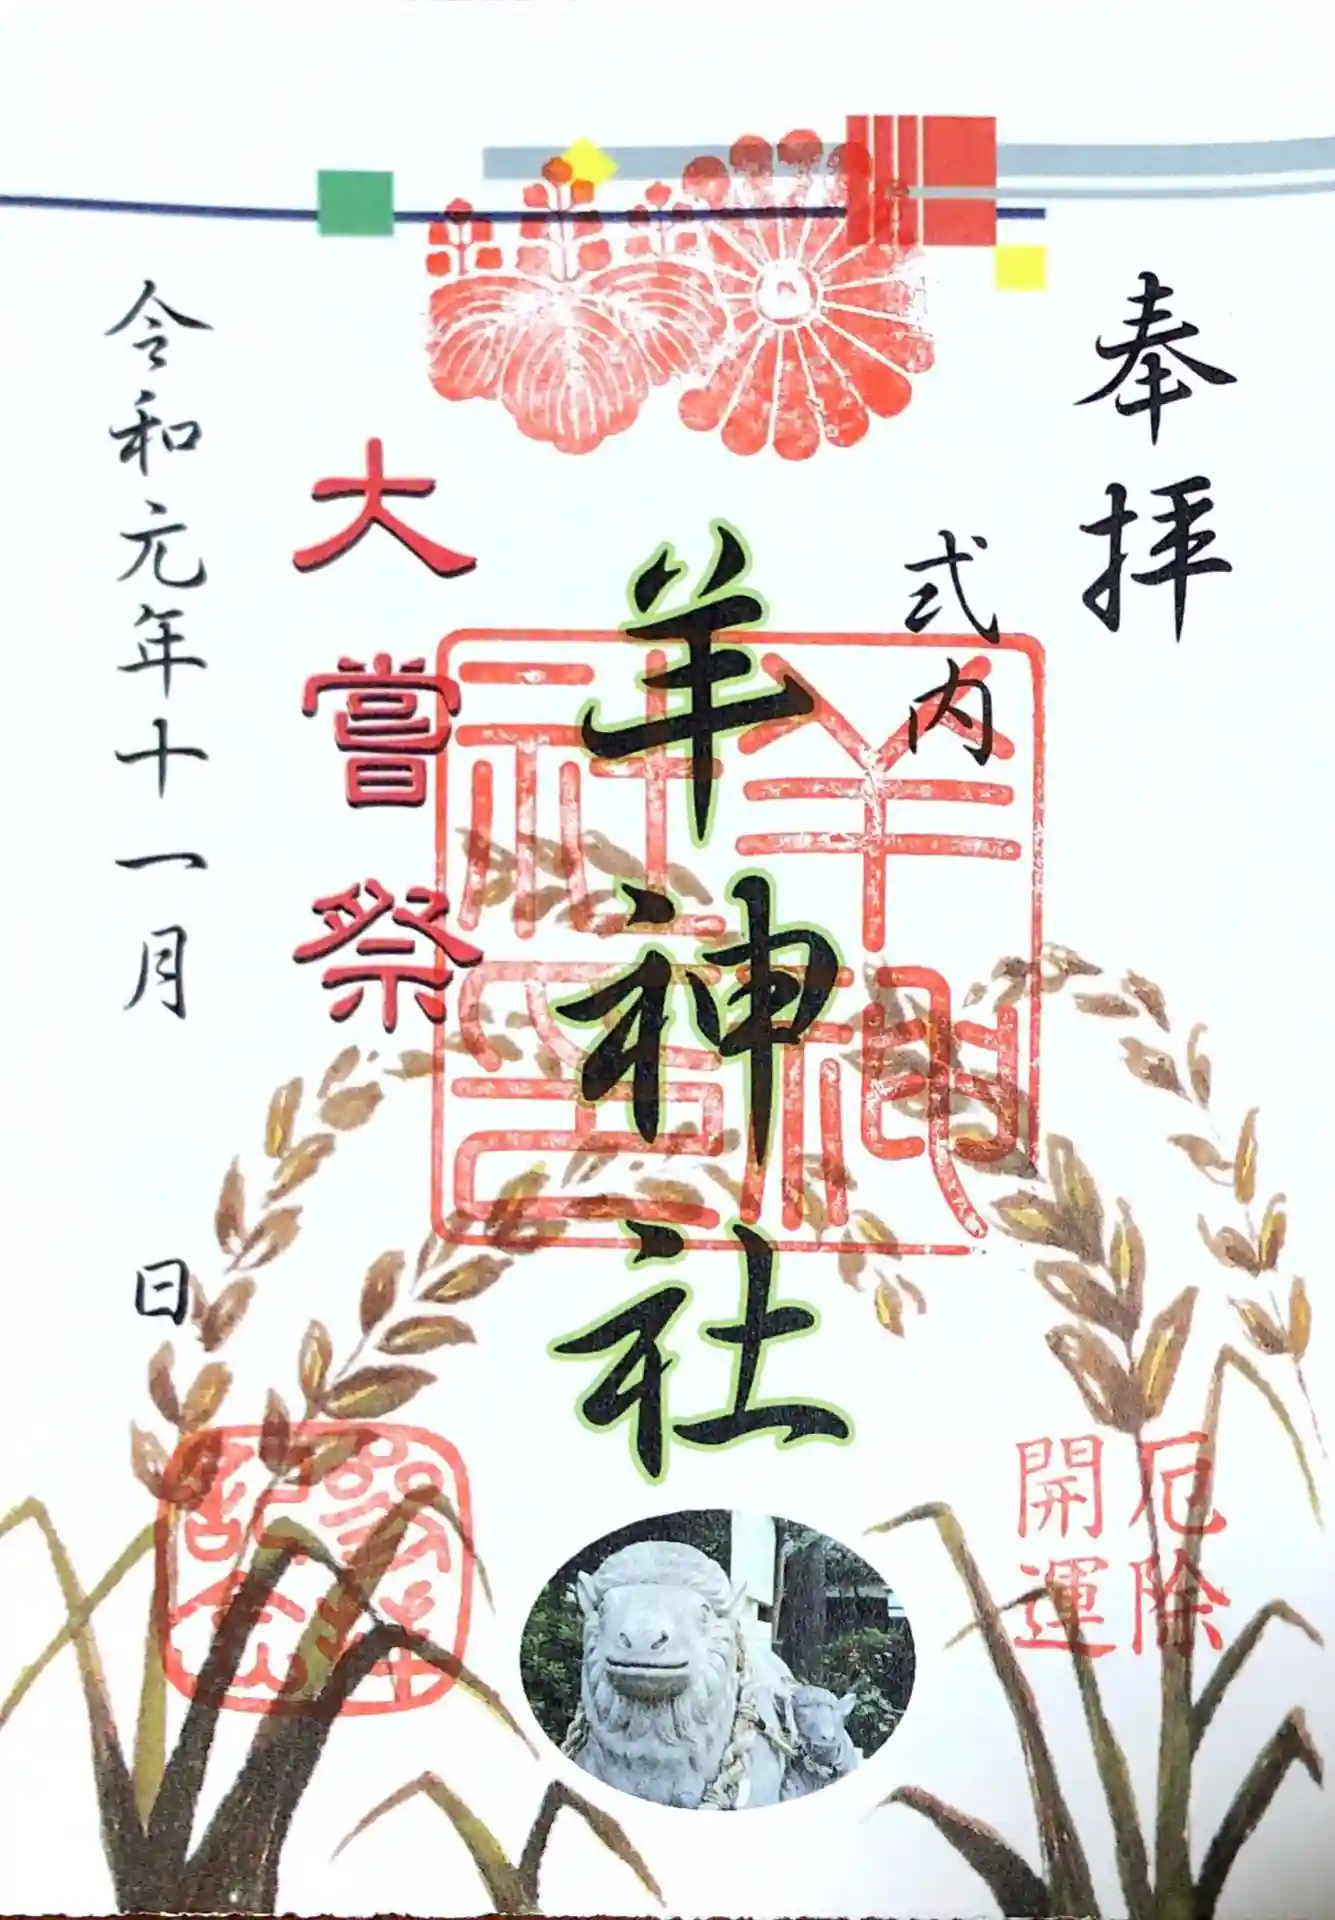 奉拝
式内
羊神社
大嘗祭
令和元年十一月 日
羊神社印
厄除
開運